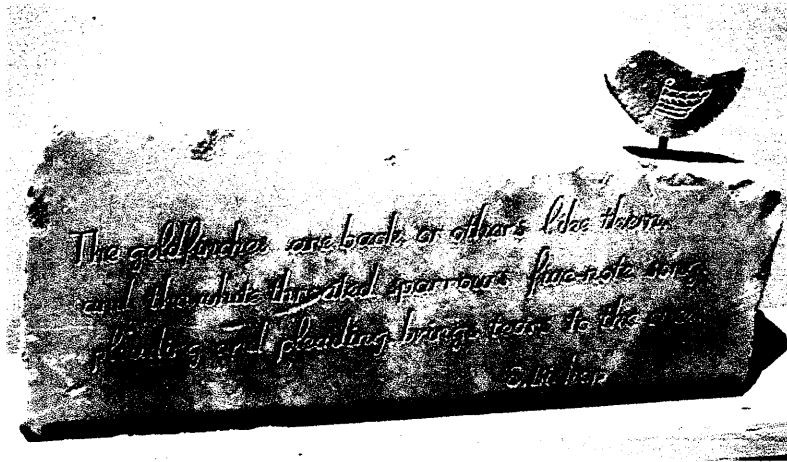 The goldfinches are back, or others like them,
and the white-throated sparrow's five-note song,
pleading and pleading, brings tears to the eyes.
E. Bishop